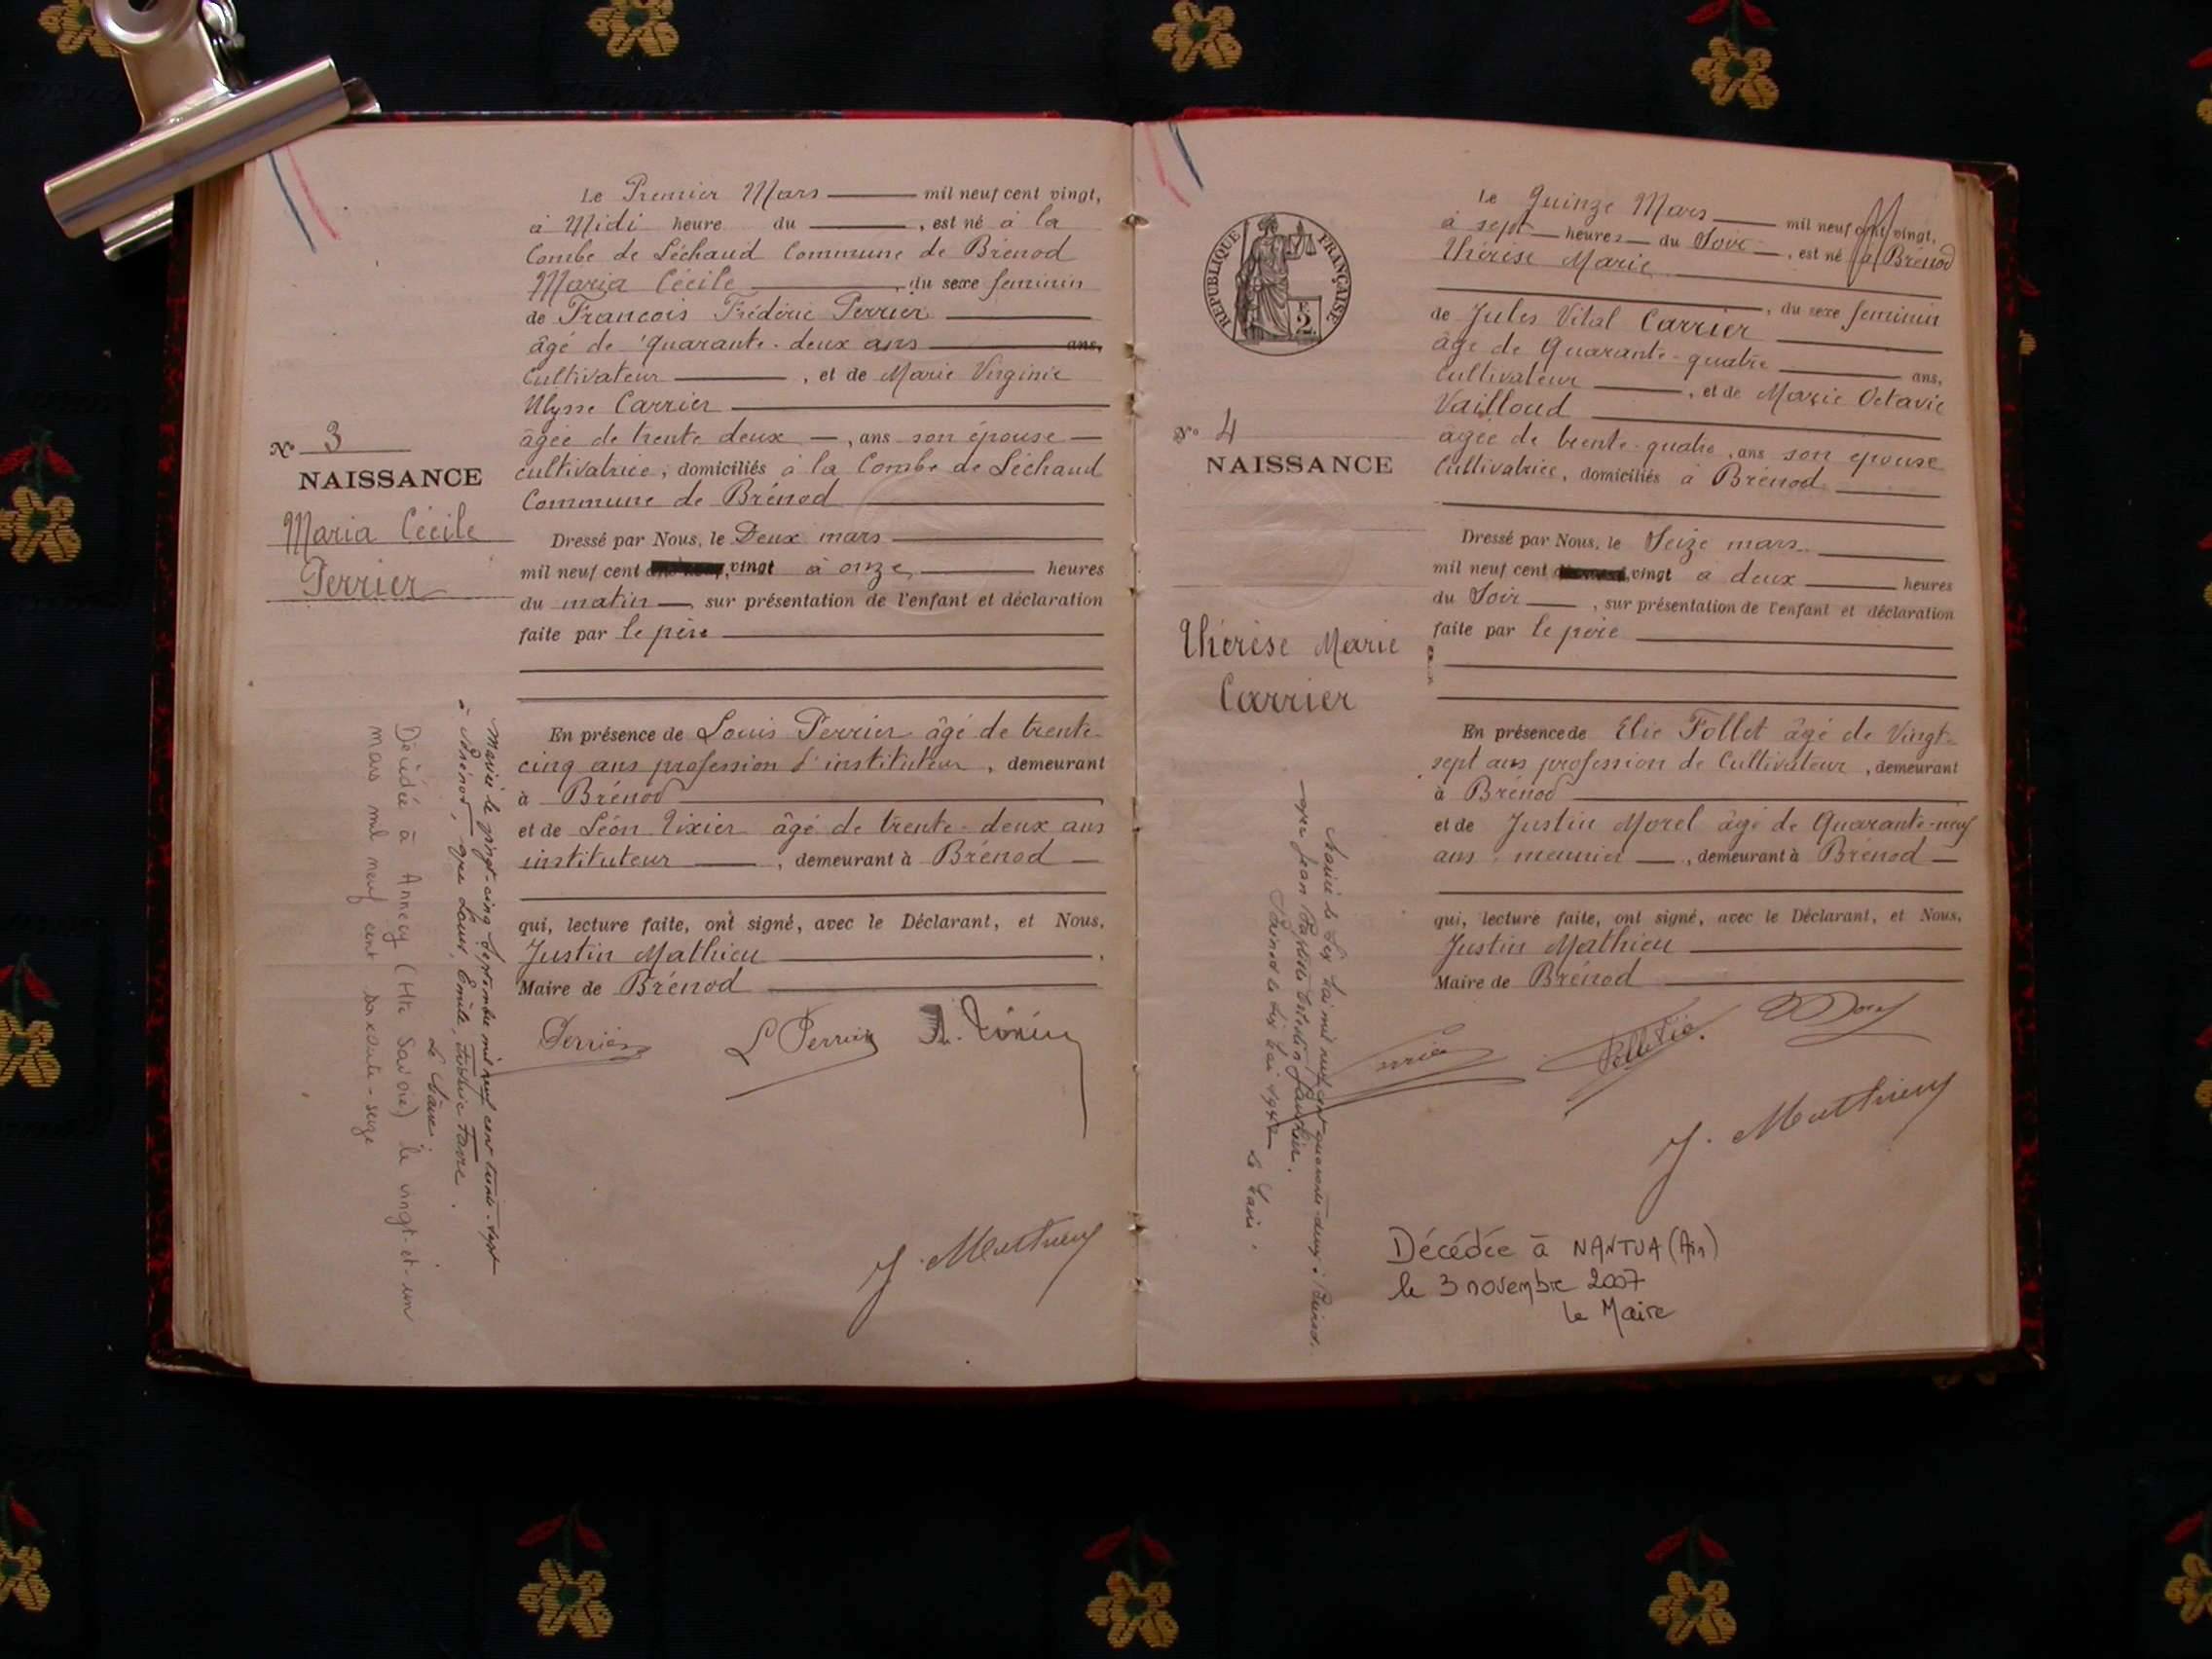 Le Premier Mars mil neuf cent vingt,
à Midi heure du , est né à la
Combe de Léchaud Commune de Brénod
Maria Cécile , du sexe feminin
de Francois Frédéric Perrier
âgé de quarante-deux ans ans,
Cultivateur , et de Marie Virginie
Ulysse Carrier
âgée de trente deux , ans son épouse
cultivatrice, domiciliés à la Combe de Léchaud
Commune de Brénod
N° 3
NAISSANCE
Maria Cécile
Perrier
Dressé par Nous, le Deux mars
mil neuf cent vingt à onze heures
du matin , sur présentation de l'enfant et déclaration
faite par le père
En présence de Louis Perrier âgé de trente-
cinq ans profession d'instituteur , demeurant
à Brénod
et de Léon Tixier âgé de trente-deux ans
instituteur , demeurant à Brénod
qui, lecture faite, ont signé, avec le Déclarant, et Nous,
Justin Mathieu
Maire de Brénod
Perrier
L Perrier
J. Mathieu
Mariée le vingt-cinq Septembre mil neuf cent trente-sept
à Brénod, avec Louis, Emile, Favre.
Le Maire
Décédée à Annecy (Hte Savoie) le vingt-et-un
mars mil neuf cent soixante-seize
RÉPUBLIQUE FRANÇAISE
Le Quinze Mars mil neuf cent vingt,
à sept heures du Soir , est né à Brénod
Thérèse Marie
, du sexe feminin
de Jules Vital Carrier
âgé de Quarante-quatre ans,
Cultivateur , et de Marie Octavie
Vailloud
âgée de trente-quatre , ans son épouse
Cultivatrice, domiciliés à Brénod
N° 4
NAISSANCE
Thérèse Marie
Carrier
Dressé par Nous, le Seize mars
mil neuf cent vingt à deux heures
du Soir , sur présentation de l'enfant et déclaration
faite par le père
En présence de Elie Follet âgé de Vingt-
sept ans profession de Cultivateur , demeurant
à Brénod
et de Justin Morel âgé de Quarante-neuf
ans meunier , demeurant à Brénod
qui, lecture faite, ont signé, avec le Déclarant, et Nous,
Justin Mathieu
Maire de Brénod
J. Mathieu
Mariée le mai mil neuf cent quarante-deux à Brénod,
avec Jean
Brénod le mai 1942 Le Maire.
Décédée à NANTUA (Ain)
le 3 novembre 2007
le Maire